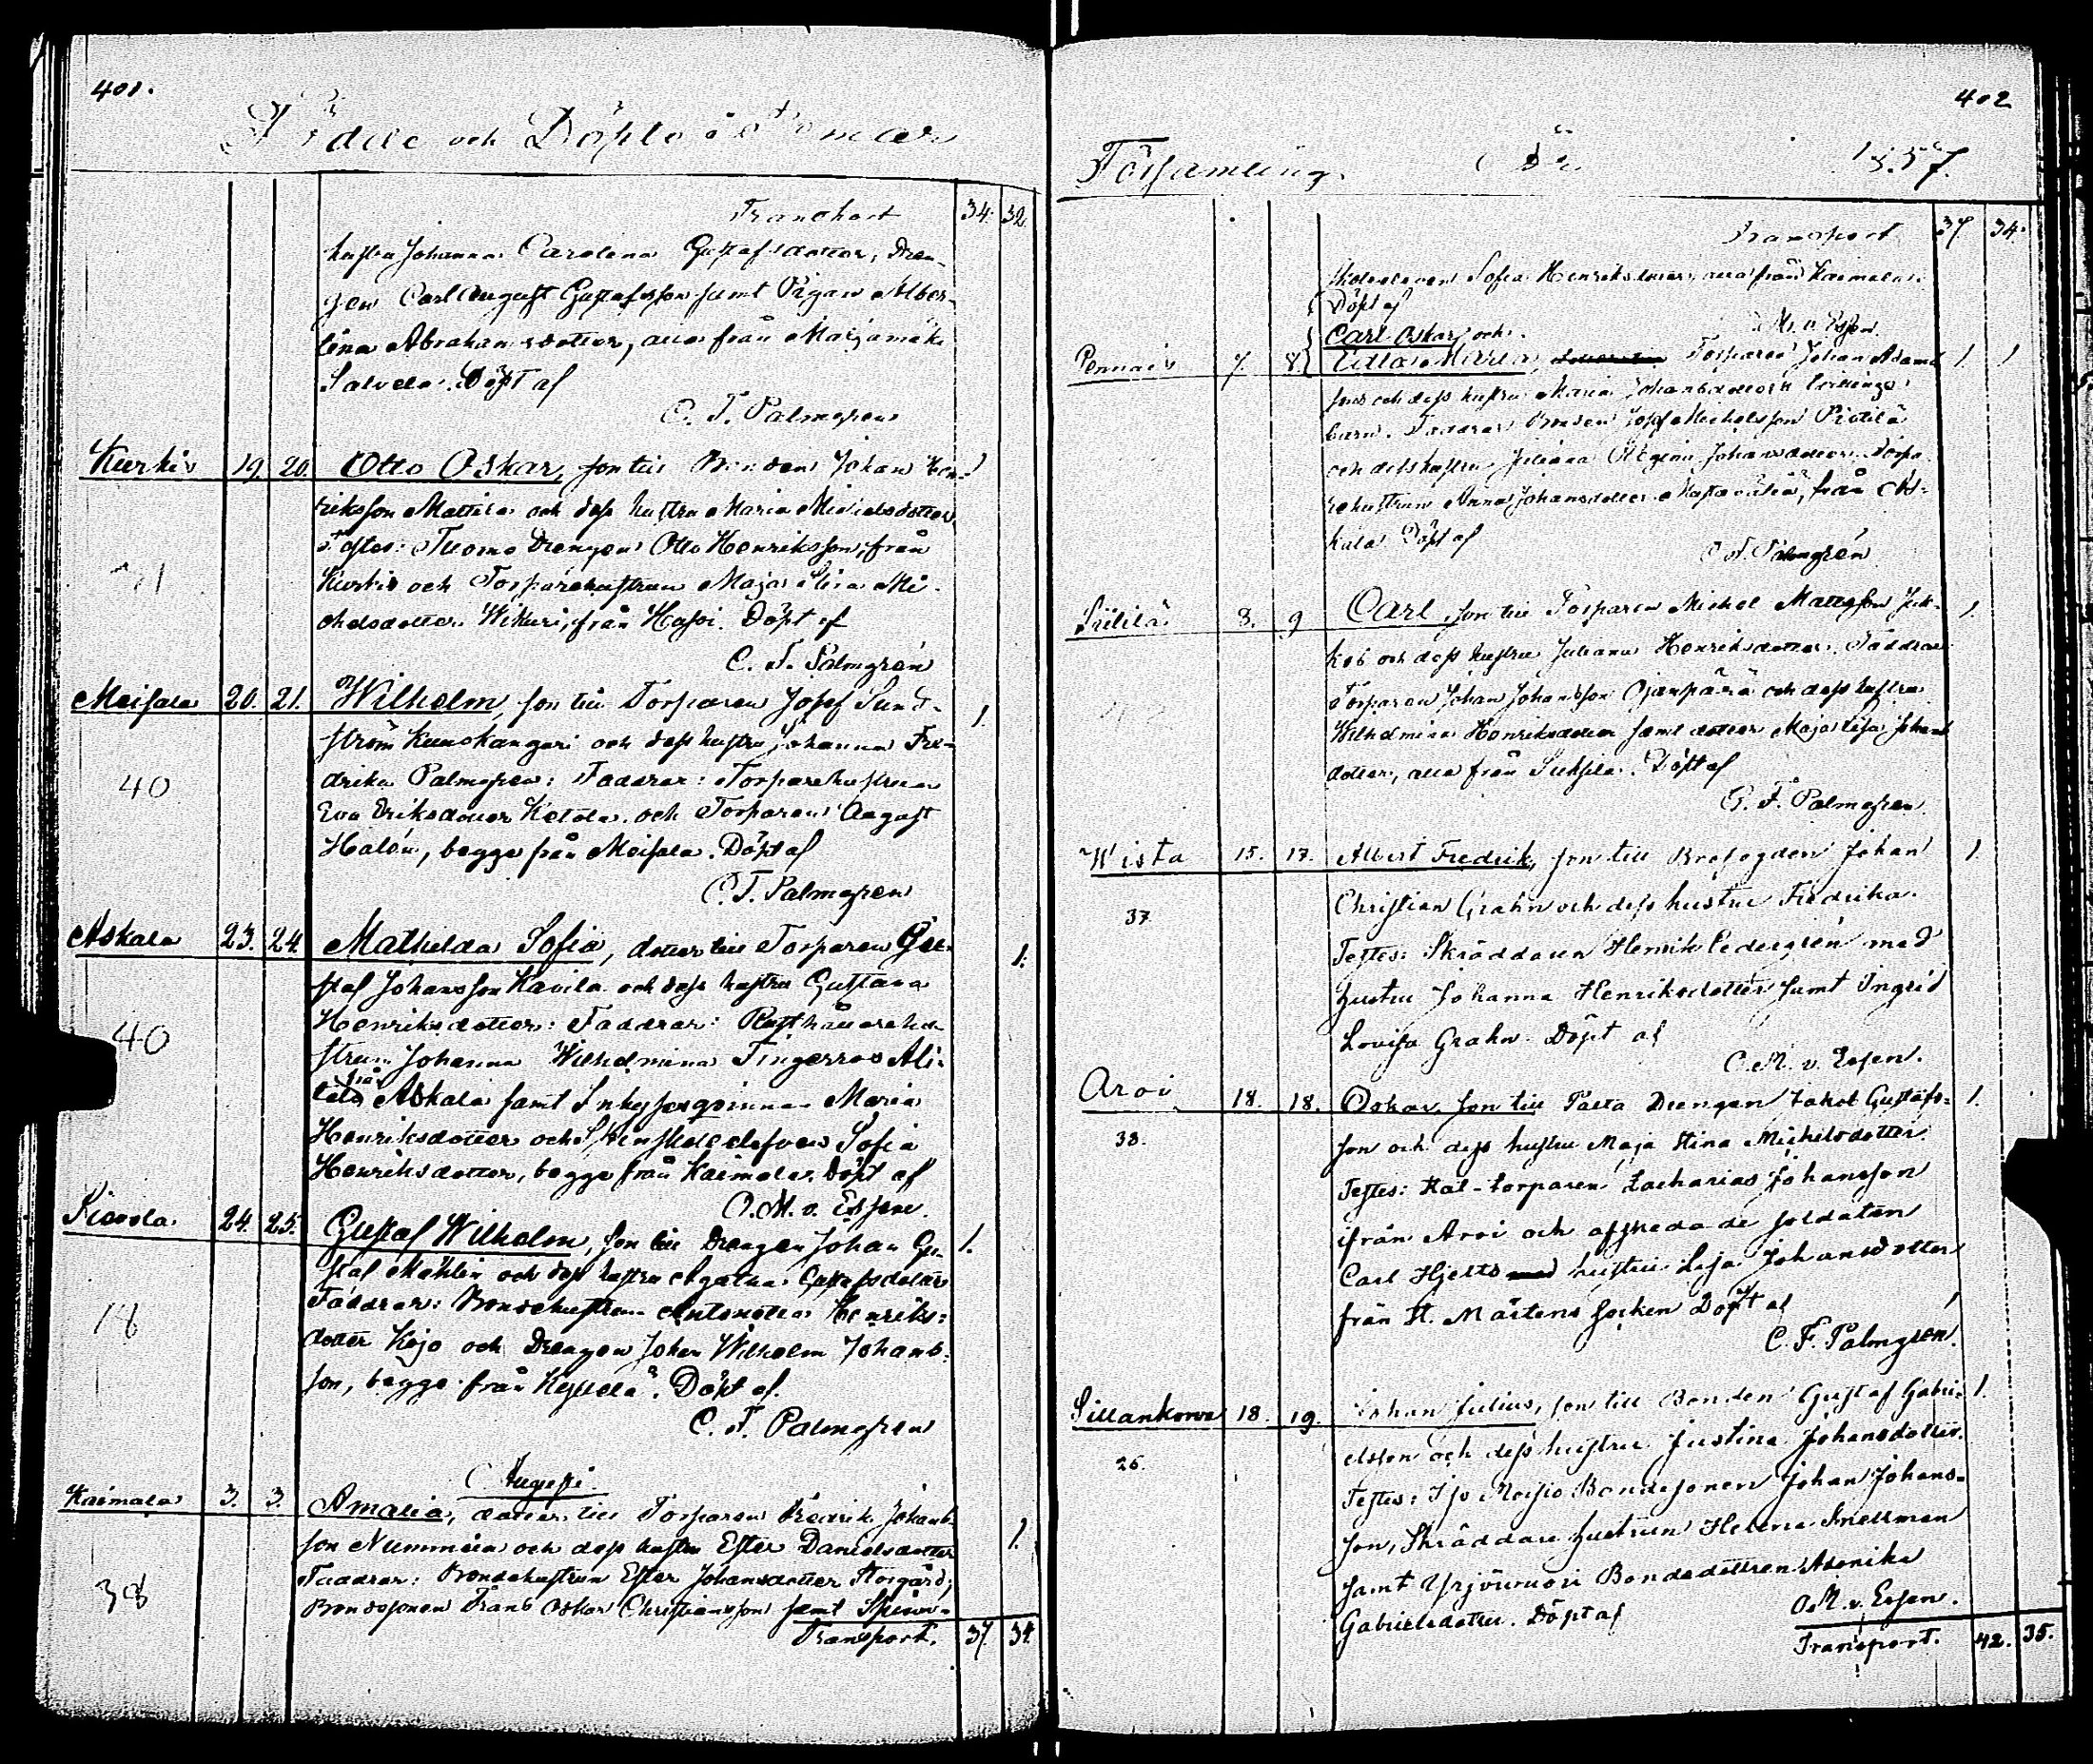 401.
Födde och Döpte i Pemar
Transport 34. 32.
hustru Johanna Carolina Gustafsdotter, Dren-
gen Carl August Gustafsson samt Pigan Alber-
tina Abrahamsdotter, alla från Marjamäki
Salvela. Döpt af
C. F. Palmgren
Kurkis 19. 20. Otto Oskar, son till Bonden Johan Hen- 1
riksson Mattila och dess hustru Maria Michelsdotter
Testes: Tuomo Drengen Otto Henriksson, från
Kurkis och Torparehustrun Maja Stina Mi-
chelsdotter Wikuri, från Hasoi. Döpt af
C. F. Palmgrén
Meisala 20. 21. Wilhelm, son till Torparen Josef Sund- 1.
ström Kunskangari och dess hustru Johanna Fre-
drika Palmgren: Faddrar: Torparehustrun
40
Eva Eriksdotter Ketola och Torparen August
Halén, begge från Meisala. Döpt af
C. F. Palmgren
Askala 23. 24 Mathilda Sofia, dotter till Torparen Gu- 1.
staf Johansson Kavila och dess hustru Gustava
Henriksdotter: Faddrar: Rusthållarehu-
40
strun Johanna Wilhelmina Tingerroos Ali-
från
talo Askala samt Inhysesqvinnan Maria
Henriksdotter och Sofia
Henriksdotter, begge från Kaimala. Döpt af
C. M. v. Essen.
24. 25. Gustaf Wilhelm, son till Drengen Johan Gu- 1.
staf Mählin och dess hustru Agatha Gustafsdotter
Faddrar: Bondehustrun Antonetta Henriks-
18
dotter Kojo och Drengen Johan Wilhelm Johans-
son, begge från Döpt af.
C. F. Palmgren
Augusti
Kaimala 3. 3. Amalia, dotter till Torparen Fredrik Johans-
son Numminen och dess hustru Ester Danielsdotter 1.
Faddrar: Bondehustrun Ester Johansdotter Storgård,
38
Bondesonen Frans Oskar Christiansson samt
Transport. 37 34
402
Församling År 1857.
Transport 37 34.
Sofia Henriksdotter, alla från Kaimala.
Döpt af
M. v. Essen
Carl Oskar, och
7. 8. Maria, Torparen Johan Adams 1. 1
sons och dess hustru Maria Johansdotters tvillinge
barn. Faddrar Bonden Josef Michelsson
och dess hustru Juliana Regina Johansdotter, Torpa
rehustrun Anna Johansdotter från As-
kala Döpt af
C. F. Palmgrén
8. 9 Carl, son till Torparen Michel Mattsson Jak- 1.
kob och dess hustru Juliana Henriksdotter. Faddrar
Torparen Johan Johansson Ojanperä och dess hustru
Wilhelmina Henriksdotter samt dotter Maja Lisa Johans
dotter, alla från Döpt af
C. F. Palmgren
Wista 15. 17. Albert Fredrik, son till Brofogden Johan 1.
37 Christian Grahn och dess hustru Fredrika.
Testes: Skräddaren Henrik Cedergrén med
hustru Johanna Henriksdotter samt Ingrid
Lovisa Grahn. Döpt af
C. M. v. Essen.
Aroi 18. 18. Oskar, son till Drengen Jakob Gustafs- 1.
38. son och dess hustru Maja Stina Michelsdotter.
Testes: Kal-torparen Zacharias Johansson
ifrån Aroi och afskedade soldaten
Carl Hjelts hustru Lisa Johansdotter
från St. Mårtens socken Döpt af
C. F. Palmgrén.
Sillankorva 18. 19. Johan Julius, son till Bonden Gustaf Gabri- 1.
26. elsson och dess hustru Justina Johansdotter.
Testes: Iso Moisio Bondesonen Johan Johans-
son, Skräddare hustrun Helena Snellman
samt Yrjövuori Bondedottren
Gabrielsdotter. Döpt af
C. M. v. Essen.
Transport. 42. 35.